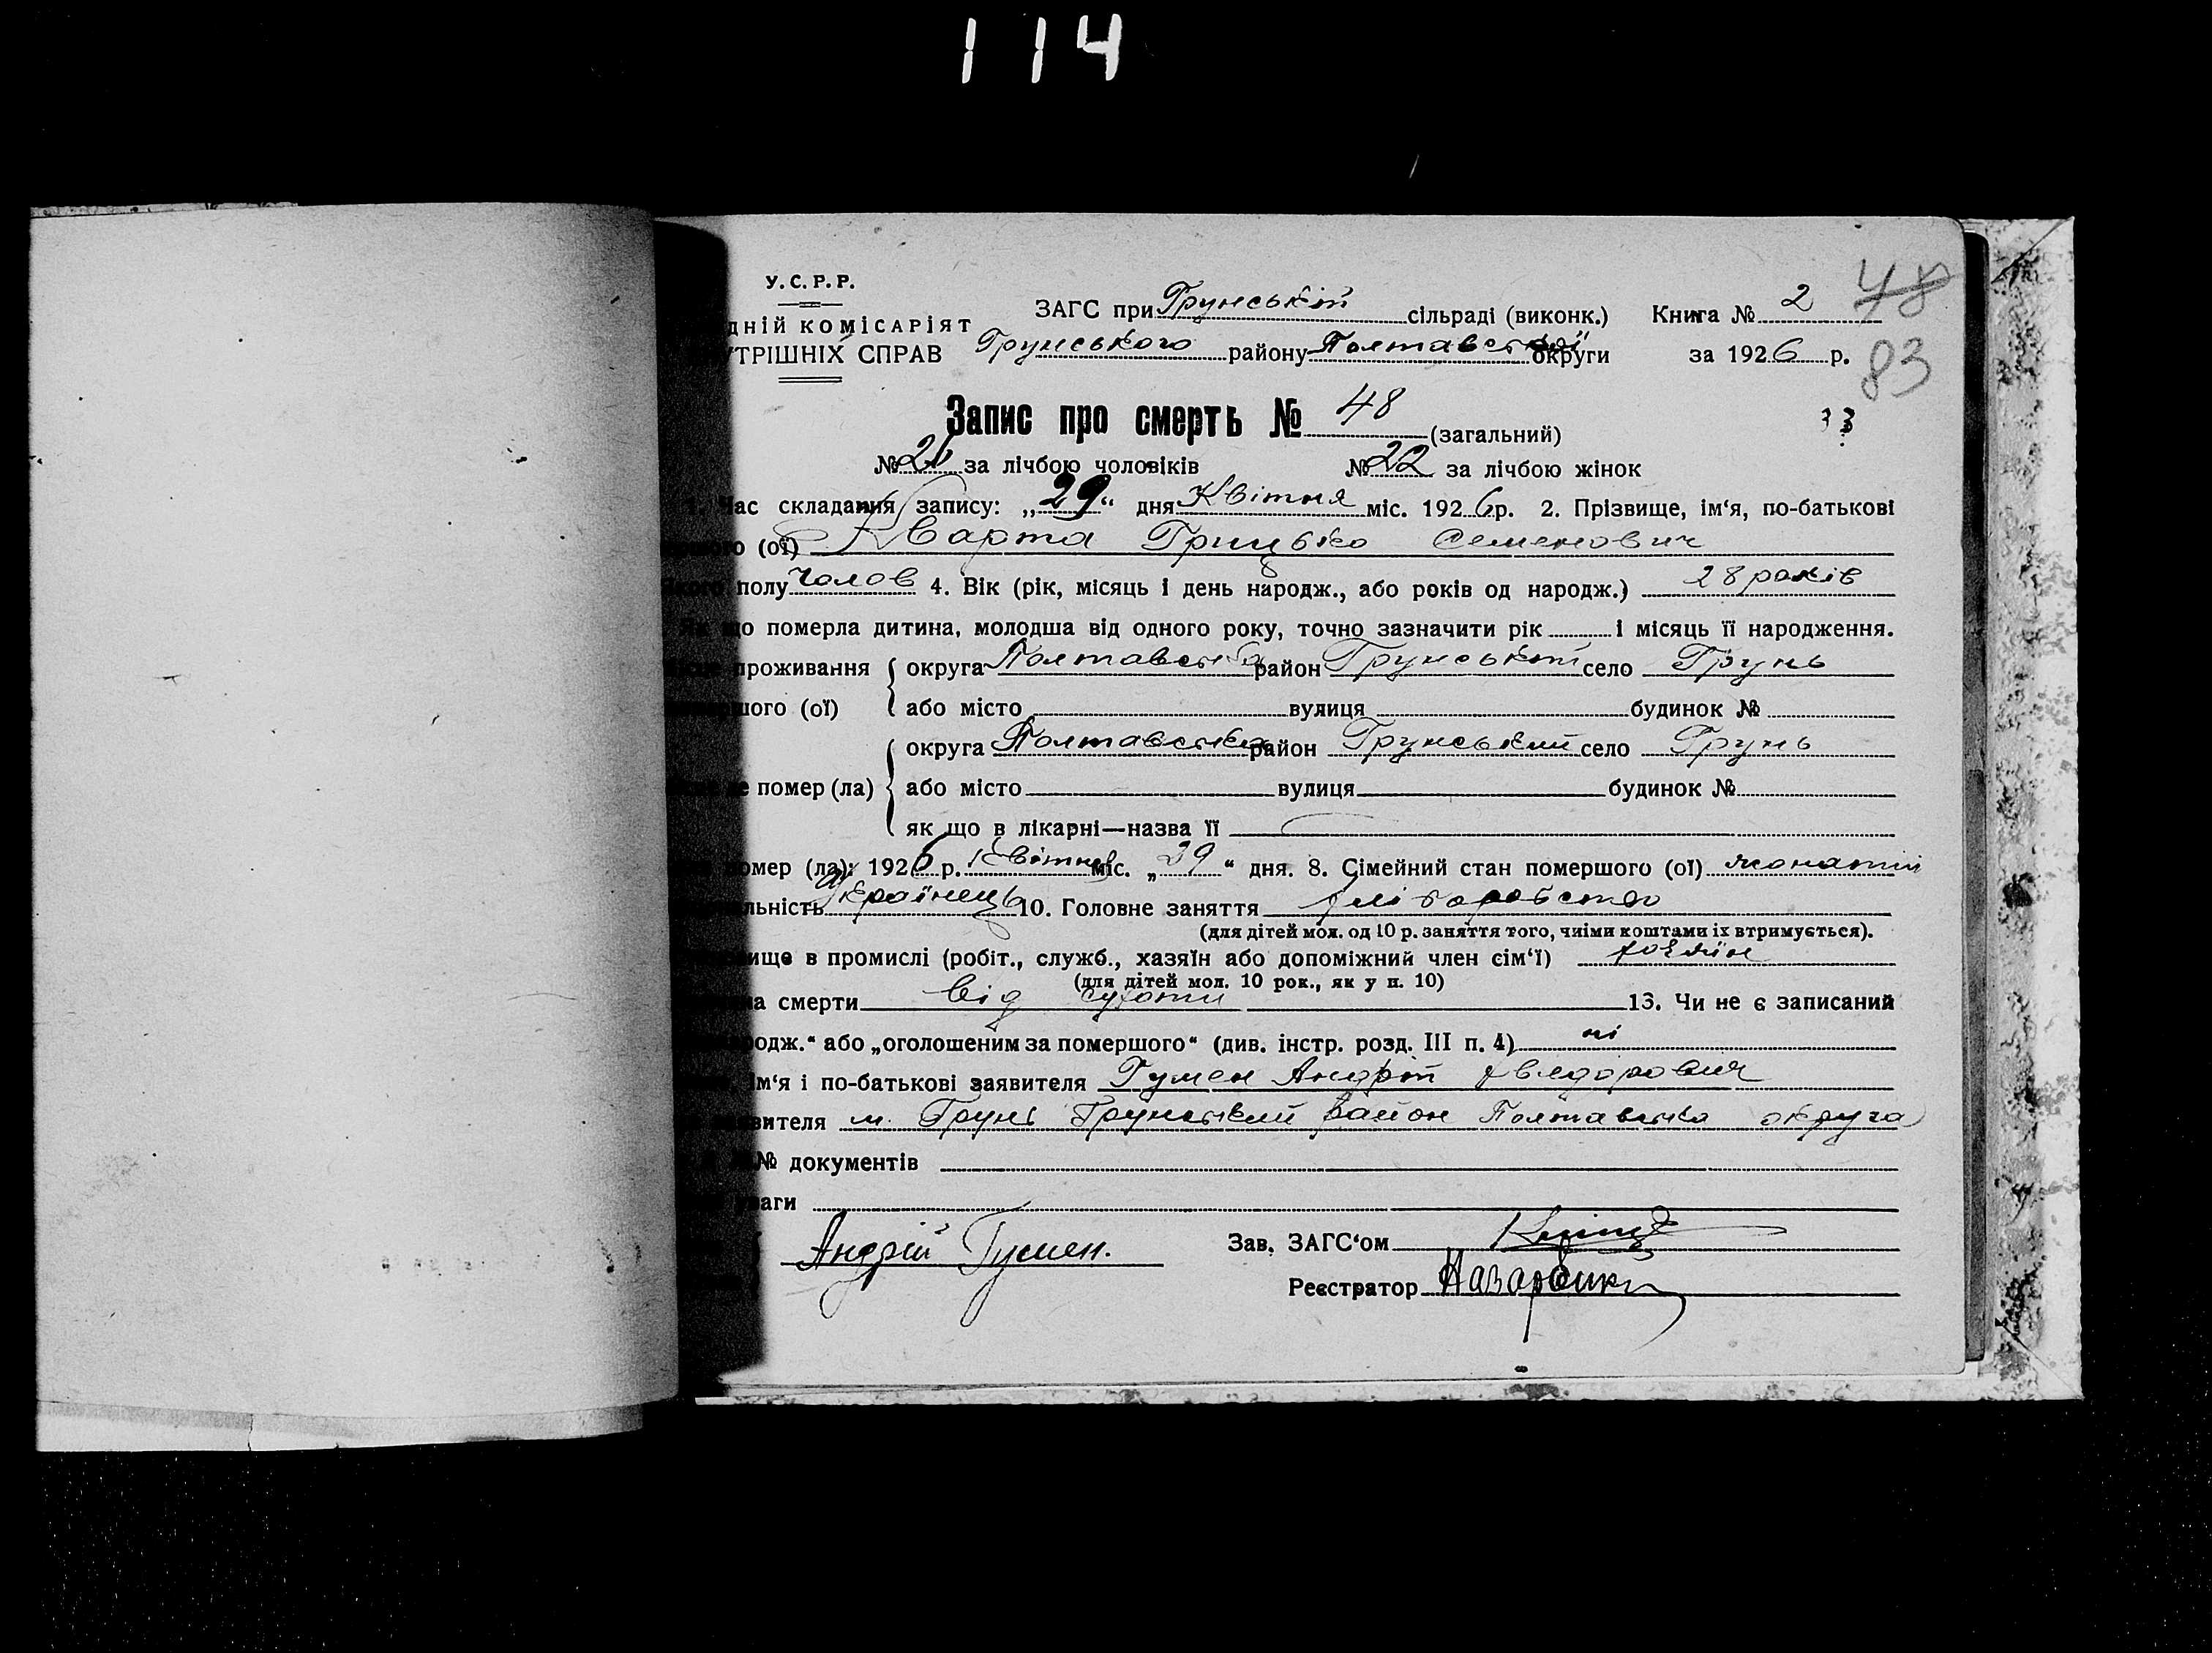 114
У.С.Р.Р.
ЗАГС при Грунській сільраді (виконк.) Книга № 2 48
дній комісаріят
Грунського району Полтавської округи за 1926 р. 83
утрішніх справ
Запис про смерть № 48 (загальний) 33
№ за лічбою чоловіків № 22 за лічбою жінок
1. Час складання запису: „29“ дня Квітня міс. 1926 р. 2. Прізвище, ім‘я, по-батькові
(ої) Кварта Грицько Семенович
полу Чолов 4. Вік (рік, місяць і день народж., або років од народж.) 28 років
Як що померла дитина, молодша від одного року, точно зазначити рік і місяць її народження.
проживання округа Полтавська район Грунський село Грунь
шого (ої) або місто вулиця будинок №
округа Полтавська район Грунський село Грунь
де помер (ла) або місто вулиця будинок №
як що в лікарні—назва її
помер (ла): 1926 р. Квітня міс. „29“ дня. 8. Сімейний стан помершого (ої) жонатий
льність Українець 10. Головне заняття хліборобство
(для дітей мол. од 10 р. заняття того, чиїми коштами їх втримується).
ище в промислі (робіт., служб., хазяїн або допоміжний член сім‘ї) хозяїн
(для дітей мол. 10 рок., як у п. 10)
на смерти від сухоти 13. Чи не є записаний
одж.“ або „оголошеним за помершого“ (див. інстр. розд. III п. 4) ні
ім‘я і по-батькові заявителя Гумен Андрій
вителя м. Грунь Грунський район Полтавська округа
№ документів
ваги
Андрій Гумен. Зав. ЗАГС‘ом
Реєстратор